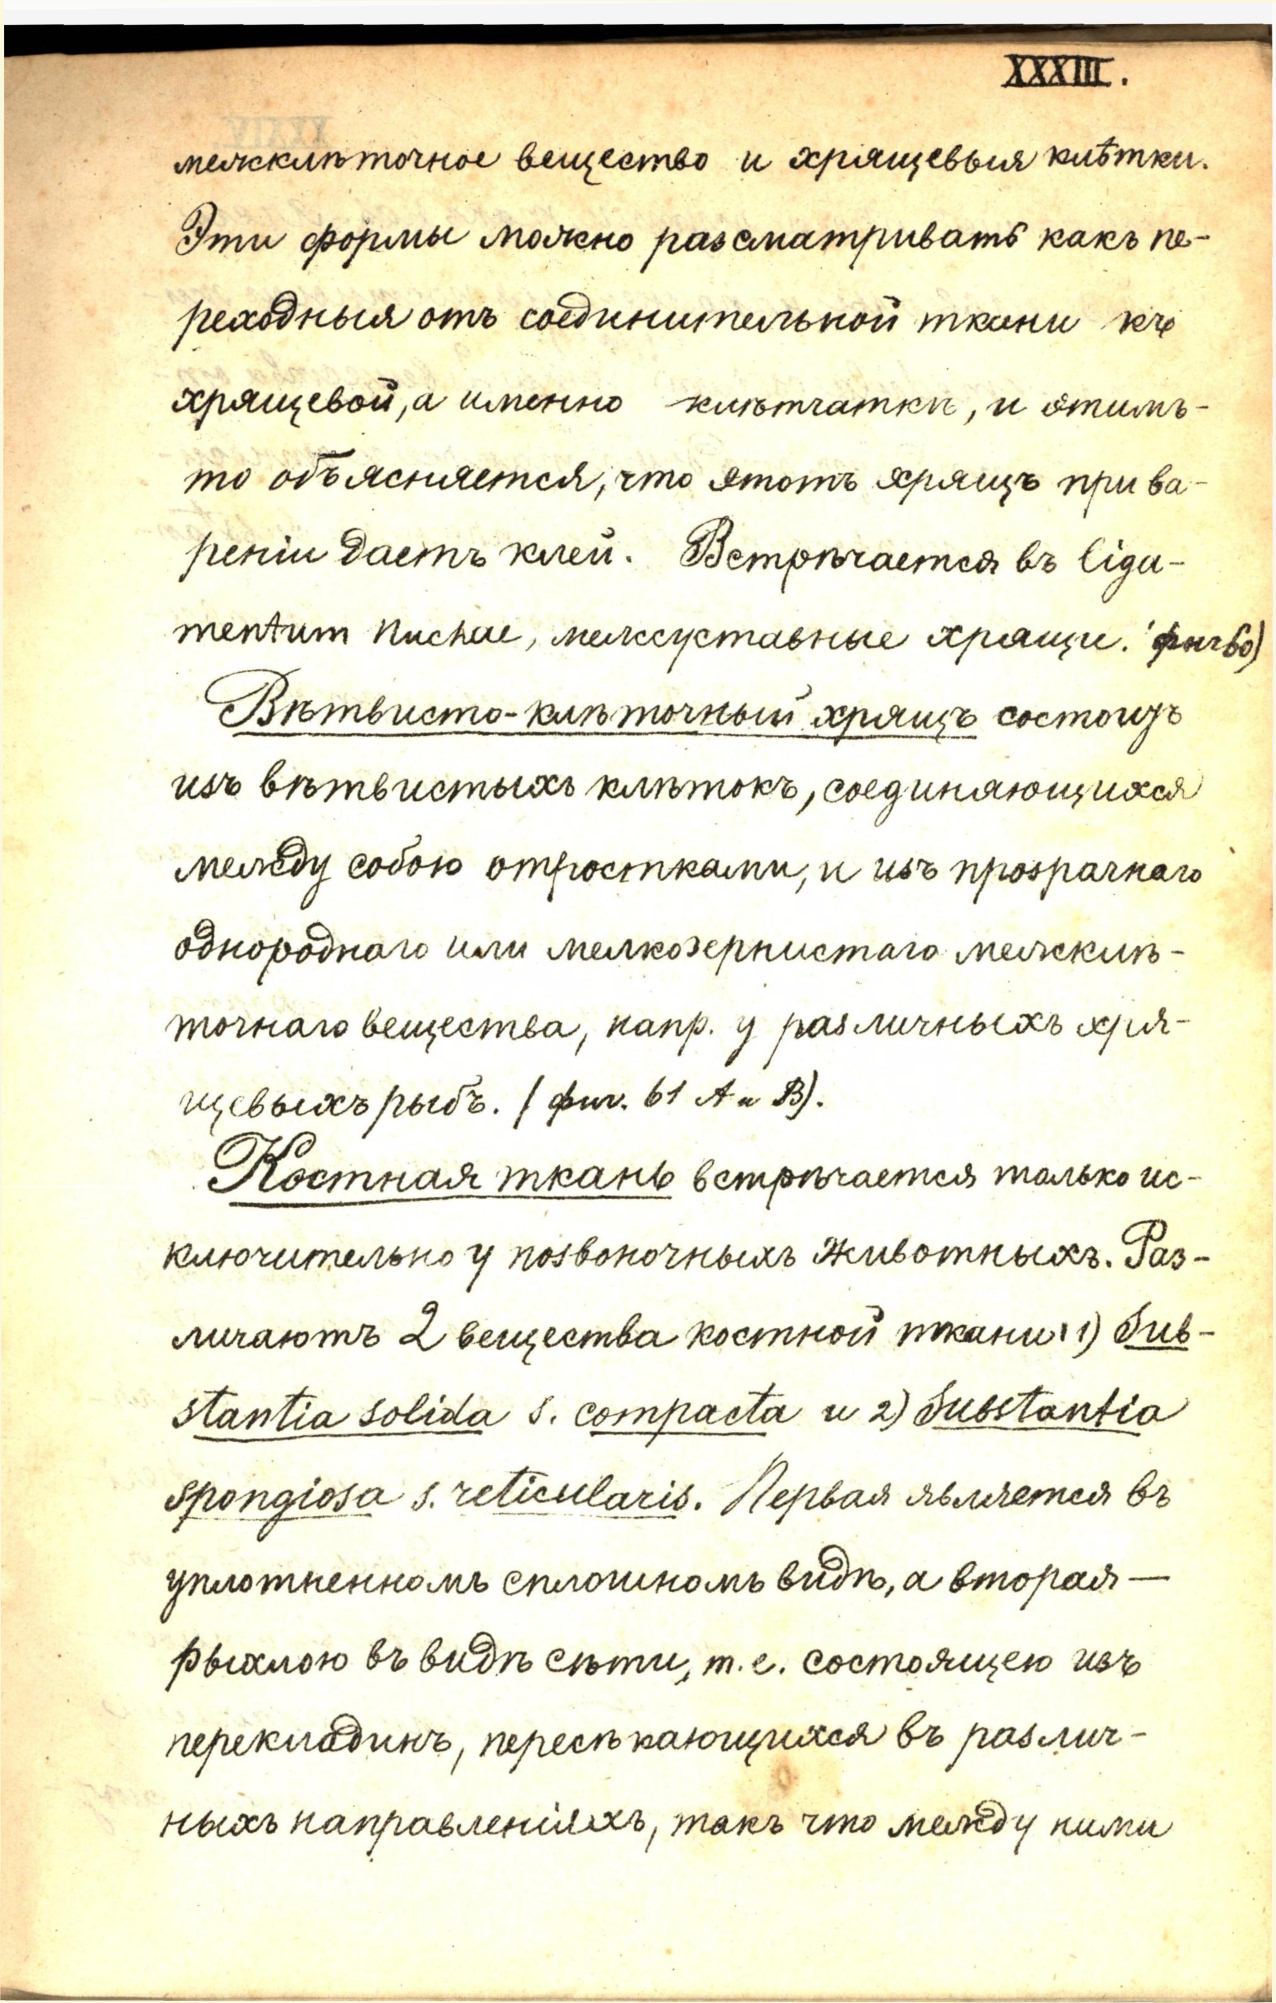 XXXIII.
межклѣточное вещество и хрящевыя клѣтки.
Эти формы можно разсматривать какъ пе-
реходныя отъ соединительной ткани къ
хрящевой, а именно клѣтчаткѣ, и этимъ-
то объясняется, что этотъ хрящъ при ва-
реніи даетъ клей. Встрѣчается въ liga-
mentum nuchae, межсуставные хрящи. (фиг 60)
Вѣтвисто-клѣточный хрящъ состоитъ
изъ вѣтвистыхъ клѣтокъ, соединяющихся
между собою отростками, и изъ прозрачнаго
однороднаго или мелкозернистаго межклѣ-
точнаго вещества, напр. у различныхъ хря-
щевыхъ рыбъ. (фиг. 61 А и В).
Костная ткань встрѣчается только ис-
ключительно у позвоночныхъ животныхъ. Раз-
личаютъ 2 вещества костной ткани: 1) Sub-
stantia solida s. compacta и 2) Substantia
spongiosa s. reticularis. Первая является въ
уплотненномъ сплошномъ видѣ, а вторая —
рыхлою въ видѣ сѣти, т. е. состоящею изъ
перекладинъ, пересѣкающихся въ различ-
ныхъ направленіяхъ, такъ что между ними